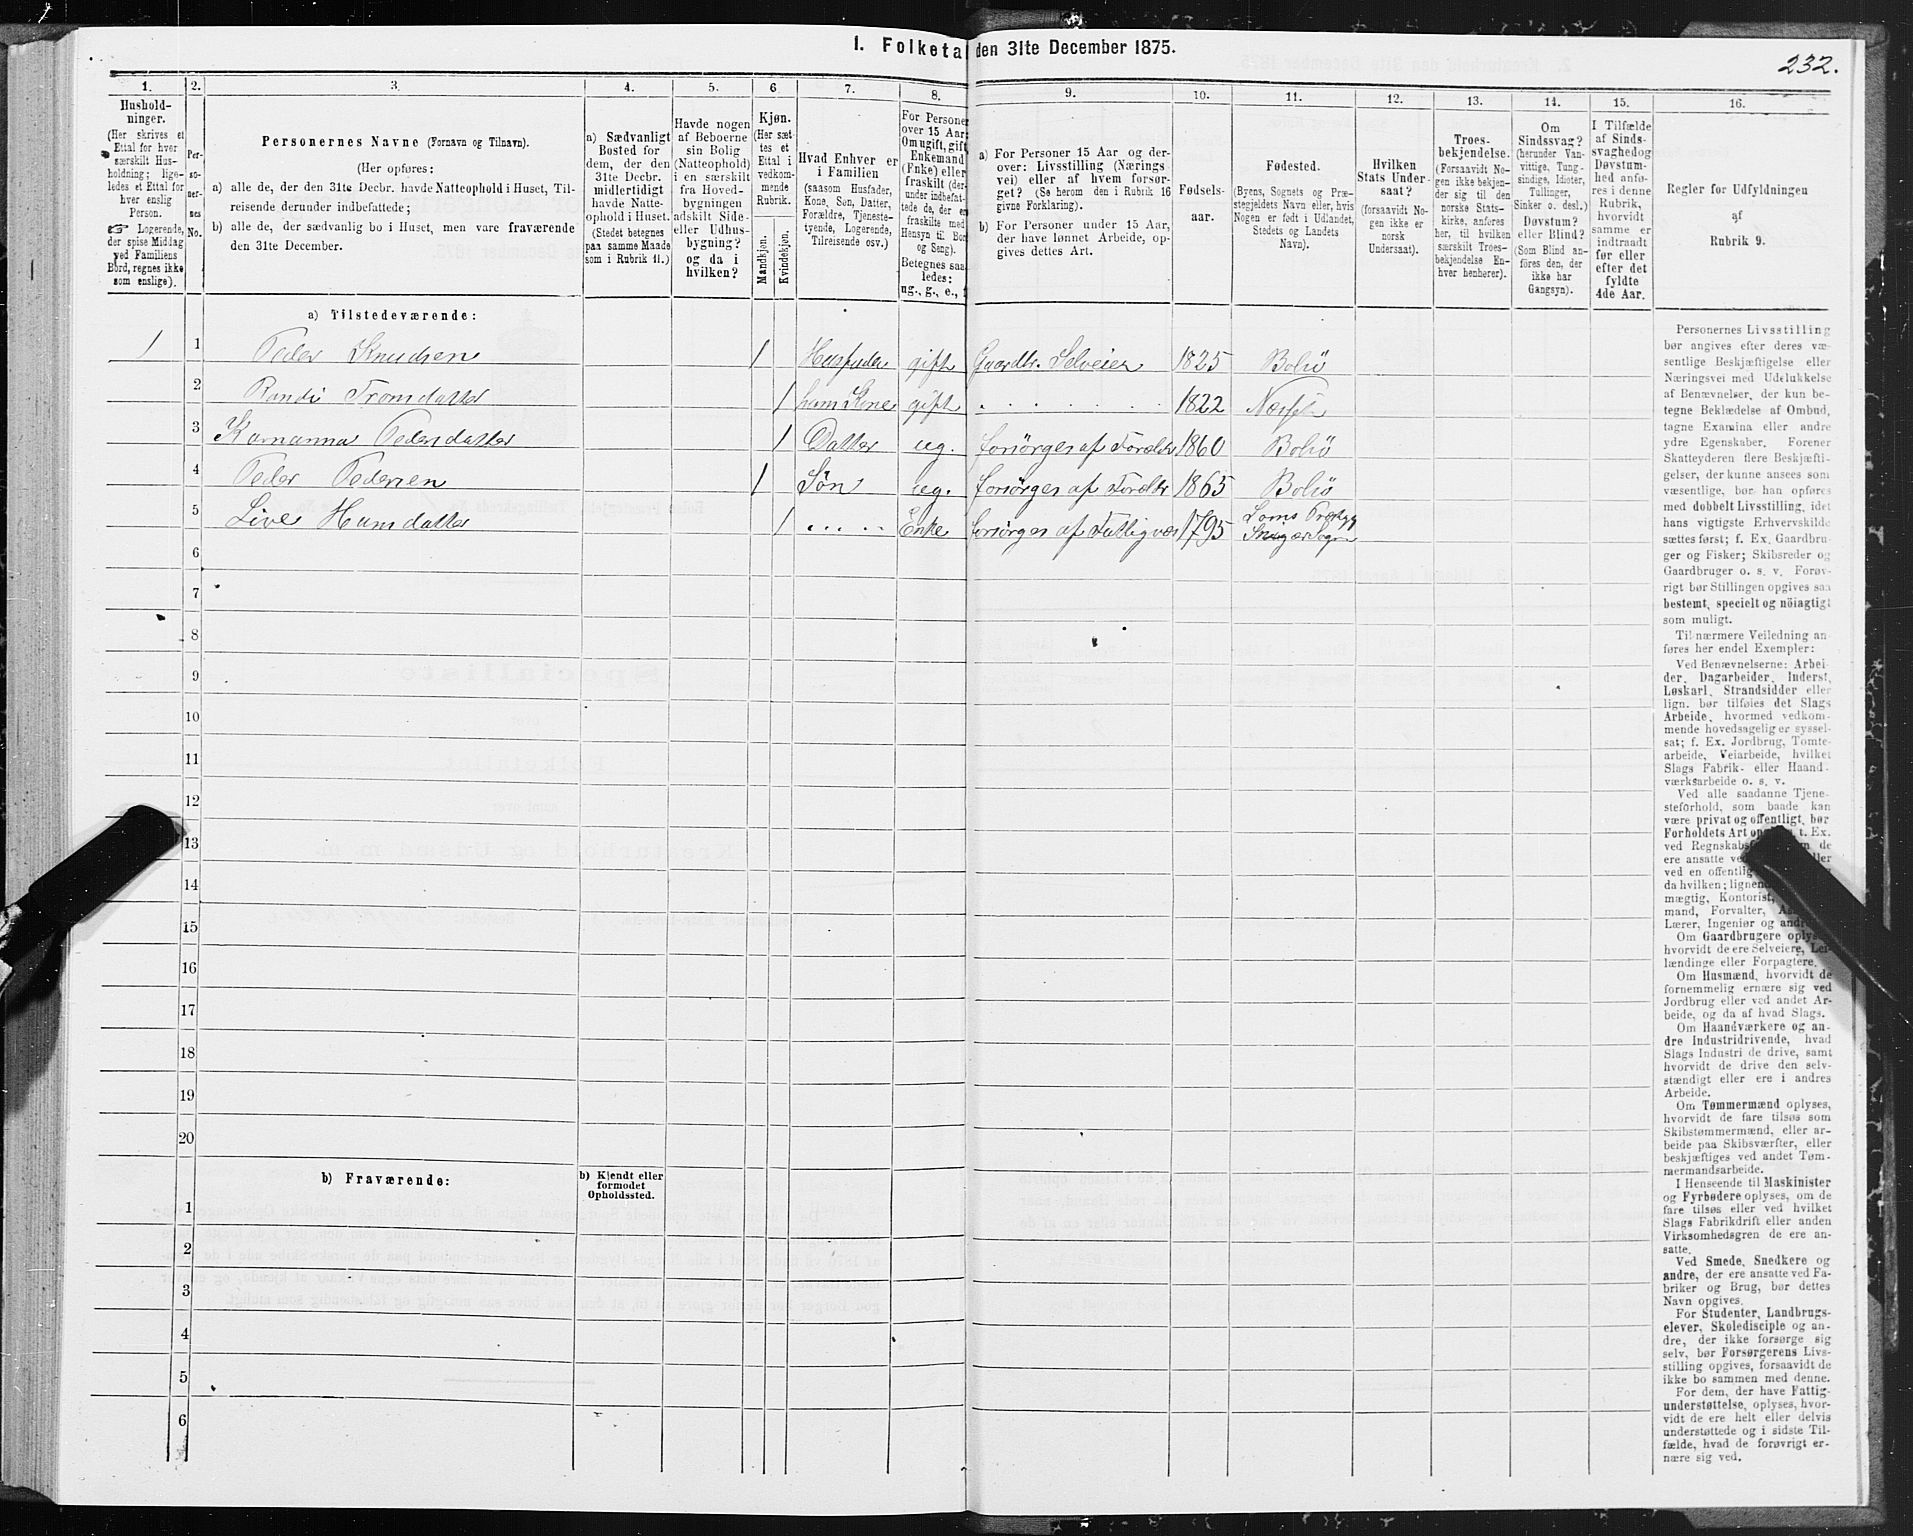 I. Folketal den 31te December 1875.
232.
1.
Hushold-
ninger.
(Her skrives et
Ettal for hver
særskilt Hus-
holdning; lige-
ledes et Ettal for
hver enslig
Person.
☞ Logerende,
der spise Middag
ved Familiens
Bord, regnes ikke
som enslige).
2.
Per-
so-
ner-
nes
No.
3.
Personernes Navne (Fornavn og Tilnavn).
(Her opføres:
a) alle de, der den 31te Decbr. havde Natteophold i Huset, Til-
reisende derunder indbefattede;
b) alle de, der sædvanlig bo i Huset, men vare fraværende
den 31te December.
4.
a) Sædvanligt
Bosted for
dem, der den
31te Decbr.
midlertidigt
havde Natte-
ophold i Huset.
(Stedet betegnes
paa samme Maade
som i Rubrik 11.)
5.
Havde nogen
af Beboerne
sin Bolig
(Natteophold)
i en særskilt
fra Hoved-
bygningen
adskilt Side-
eller Udhus-
bygning?
og da i
hvilken?
6
Kjøn.
(Her sæt-
tes et
Ettal i
vedkom-
mende
Rubrik.
Mandkjøn.
Kvindekjøn.
7.
Hvad Enhver er
i Familien
(saasom Husfader,
Kone, Søn, Datter,
Forældre, Tjeneste-
tyende, Logerende,
Tilreisende osv.)
8.
For Personer
over 15 Aar:
Om ugift, gift,
Enkemand
(Enke) eller
fraskilt (der-
under indbefat-
tede de, der er
fraskilte med
Hensyn til Bord
og Seng).
Betegnes saa-
ledes:
ug., g., e., f.
9.
a) For Personer 15 Aar og der-
over: Livsstilling (Nærings-
vei) eller af hvem forsør-
get? (Se herom den i Rubrik 16
givne Forklaring).
b) For Personer under 15 Aar,
der have lønnet Arbeide, op-
gives dettes Art.
10.
Fødsels-
aar.
11.
Fødested.
(Byens, Sognets og Præ-
stegjeldets Navn eller, hvis
Nogen er født i Udlandet,
Stedets og Landets
Navn).
12.
Hvilken
Stats Under-
saat?
(forsaavidt No-
gen ikke er
norsk
Undersaat).
13.
Troes-
bekjendelse.
(Forsaavidt No-
gen ikke bekjen-
der sig til den
norske Stats-
kirke, anføres
her, til hvilken
særskilt Troes-
bekjendelse En-
hver henhører).
14.
Om
Sindssvag?
(herunder Van-
vittige, Tung-
sindige, Idioter,
Tullinger,
Sinker o. desl.)
Døvstum?
eller Blind?
(Som Blind an-
føres den, der
ikke har
Gangsyn).
15.
I Tilfælde
af Sinds-
svaghed og
Døvstum-
hed anfø-
res i denne
Rubrik,
hvorvidt
samme er
indtraadt
før eller
efter det
fyldte
4de Aar.
16.
Regler for Udfyldningen
af
Rubrik 9.
a) Tilstedeværende:
1 1 Peder Knudsen 1 Husfader gift Gaardbr. Selveier 1825 Bolsø
2 Randi Tromsdatter 1 hans Kone gift . . . . . . . . 1822 Nesset
3 Karnanna Pedersdatter 1 Datter ug. forsørges af Foreldr 1860 Bolsø
4 Peder Pedersen 1 Søn ug. forsørges af Foreldr 1865 Bolsø
5 Live Hansdatter 1 . . . . . Enke forsørges af Fattigvæs 1795 Loms Præstgj
6
7
8
9
10
11
12
13
14
15
16
17
18
19
20
b) Fraværende:
b) Kjendt eller
formodet
Opholdssted.
1
2
3
4
5
6
Personernes Livsstilling
bør angives efter deres væ-
sentlige Beskjæftigelse eller
Næringsvei med Udelukkelse
af Benævnelser, der kun be-
tegne Beklædelse af Ombud,
tagne Examina eller andre
ydre Egenskaber. Forener
Skatteyderen flere Beskjæfti-
gelser, der kunne ansees som
væsentlige, bør han opføres
med dobbelt Livsstilling, idet
hans vigtigste Erhvervskilde
sættes først; f. Ex. Gaardbru-
ger og Fisker; Skibsreder og
Gaardbruger o. s. v. Forøv-
rigt bør Stillingen opgives saa
bestemt, specielt og nöiagtigt
som muligt.
Til nærmere Veiledning an-
føres her endel Exempler:
Ved Benævnelserne: Arbei-
der, Dagarbeider, Inderst,
Løskarl, Strandsidder eller
lign. bør tilføies det Slags
Arbeide, hvormed vedkom-
mende hovedsagelig er syssel-
sat; f. Ex. Jordbrug, Tomte-
arbeide, Veiarbeide, hvilket
Slags Fabrik- eller Haand-
værksarbeide o. s. v.
Ved alle saadanne Tjene-
steforhold, som baade kan
være privat og offentligt, bør
Forholdets Art t. Ex.
ved de
ere ansatte eller
ved en offentlig
da hvilken;
mægtig, Kontorist,
mand, Forvalter,
Lærer, Ingeniør og
Om Gaardbrugere oplyses
hvorvidt de ere Selveiere, Lei-
lændinge eller Forpagtere.
Om Husmænd, hvorvidt de
fornemmelig ernære sig ved
Jordbrug eller ved andet Ar-
beide, og da af hvad Slags.
Om Haandværkere og an-
dre Industridrivende, hvad
Slags Industri de drive, samt
hvorvidt de drive den selv-
stændigt eller ere i andres
Arbeide.
Om Tømmermænd oplyses,
hvorvidt de fare tilsøs som
Skibstømmermænd, eller ar-
beide paa Skibsværfter, eller
beskjæftiges ved andet Tøm-
mermandsarbeide.
I Henseende til Maskinister
og Fyrbødere oplyses, om de
fare tilsøs eller ved hvilket
Slags Fabrikdrift eller anden
Virksomhedsgren de ere an-
satte.
Ved Smede, Snedkere og
andre, der ere ansatte ved Fa-
briker og Brug, bør dettes
Navn opgives.
For Studenter, Landbrugs-
elever, Skoledisciple og an-
dre, der ikke forsørge sig
selv, bør Forsørgerens Livs-
stilling opgives, forsaavidt de
ikke bo sammen med denne.
For dem, der have Fattig-
understøttelse, oplyses, hvor-
vidt de ere helt eller delvis
understøttede og i sidste Til-
fælde, hvad de forøvrigt er-
nære sig ved.